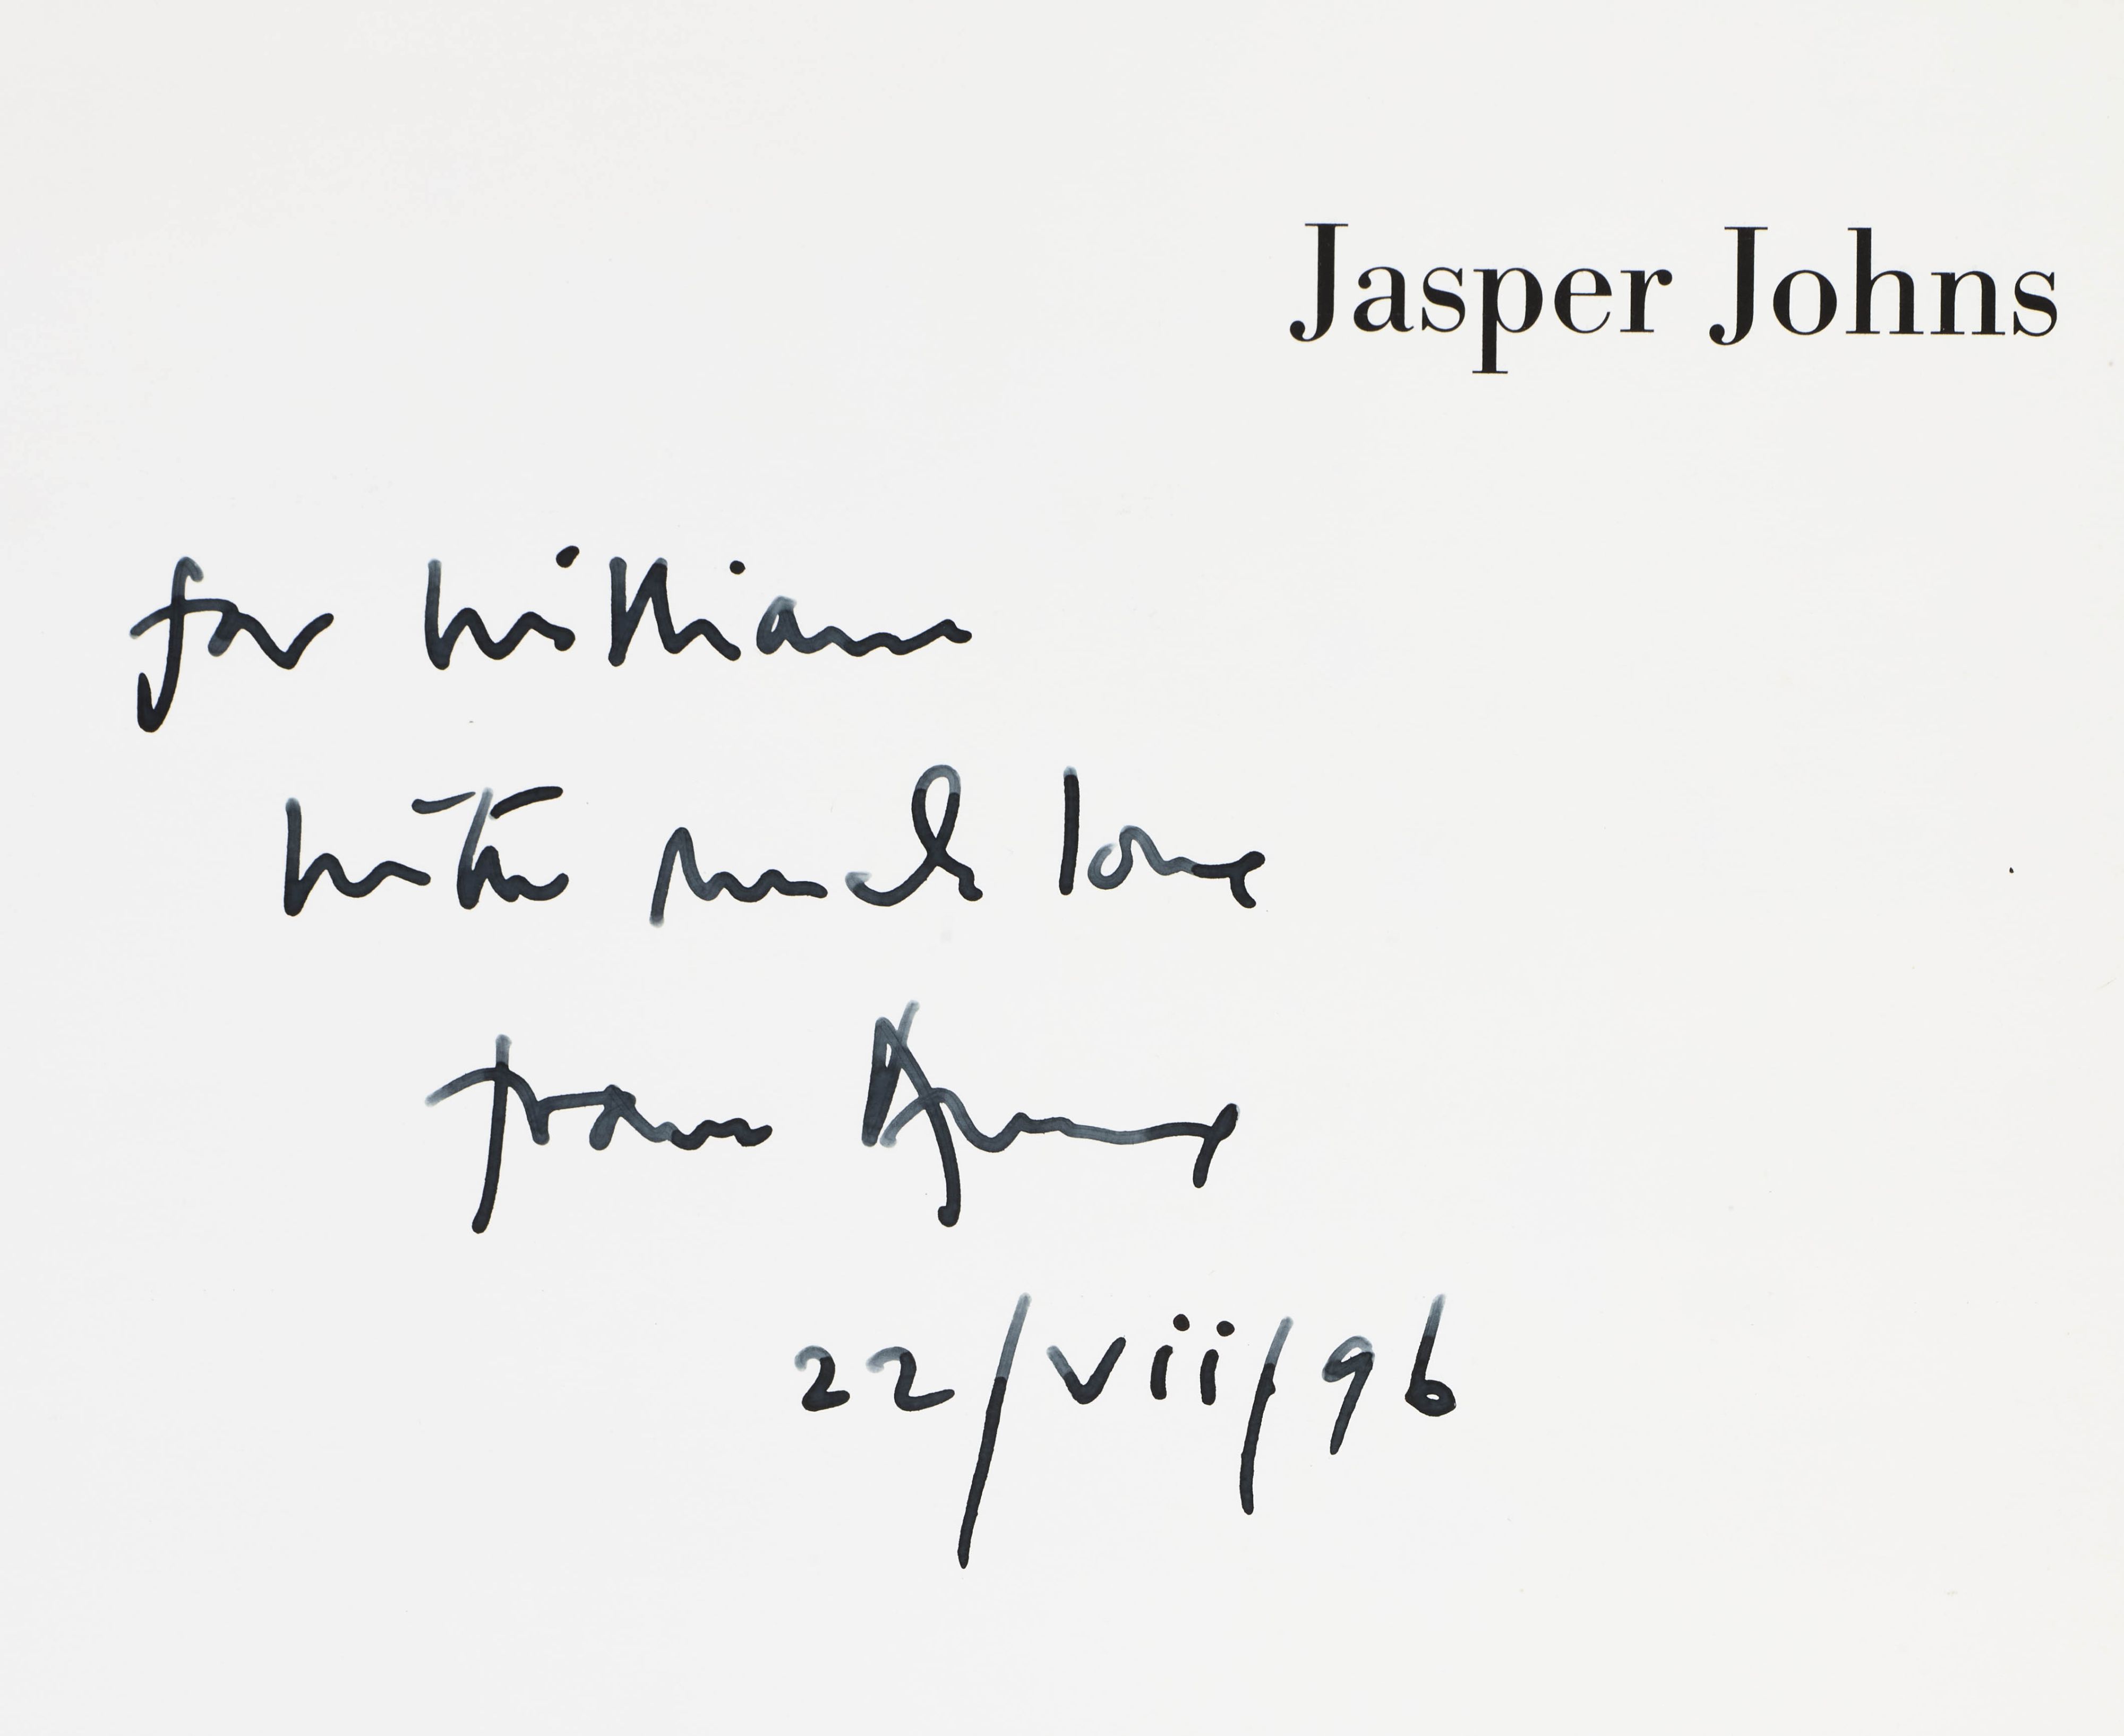 Jasper Johns
for William
with much love
from
22/vii/96